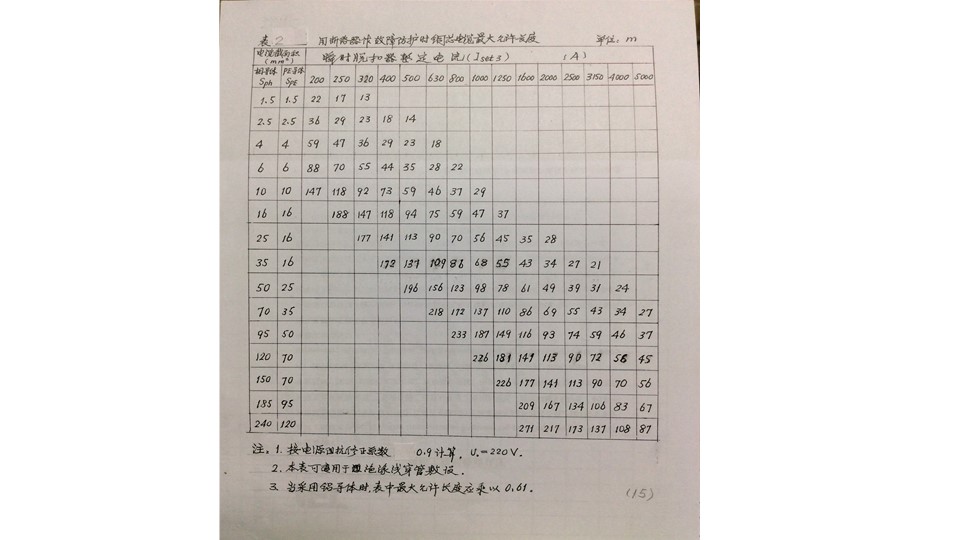 表2 用断路器作故障防护时铜芯电缆最大允许长度 单位: m
电缆截面积 (mm²) 瞬时脱扣器整定电流(Iset3) (A)
相导体 Sph PE导体 SPE 200 250 320 400 500 630 800 1000 1250 1600 2000 2500 3150 4000 5000
1.5 1.5 22 17 13
2.5 2.5 36 29 23 18 14
4 4 59 47 36 29 23 18
6 6 88 70 55 44 35 28 22
10 10 147 118 92 73 59 46 37 29
16 16 188 147 118 94 75 59 47 37
25 16 177 141 113 90 70 56 45 35 28
35 16 172 137 109 86 68 55 43 34 27 21
50 25 196 156 123 98 78 61 49 39 31 24
70 35 218 172 137 110 86 69 55 43 34 27
95 50 233 187 149 116 93 74 59 46 37
120 70 226 181 141 113 90 72 56 45
150 70 226 177 141 113 90 70 56
185 95 209 167 134 106 83 67
240 120 271 217 173 137 108 87
注: 1. 按电源阻抗修正系数 0.9计算, U₀=220V.
2. 本表可适用于 绝缘线穿管敷设.
3. 当采用铝导体时,表中最大允许长度应乘以0.61.
(15)